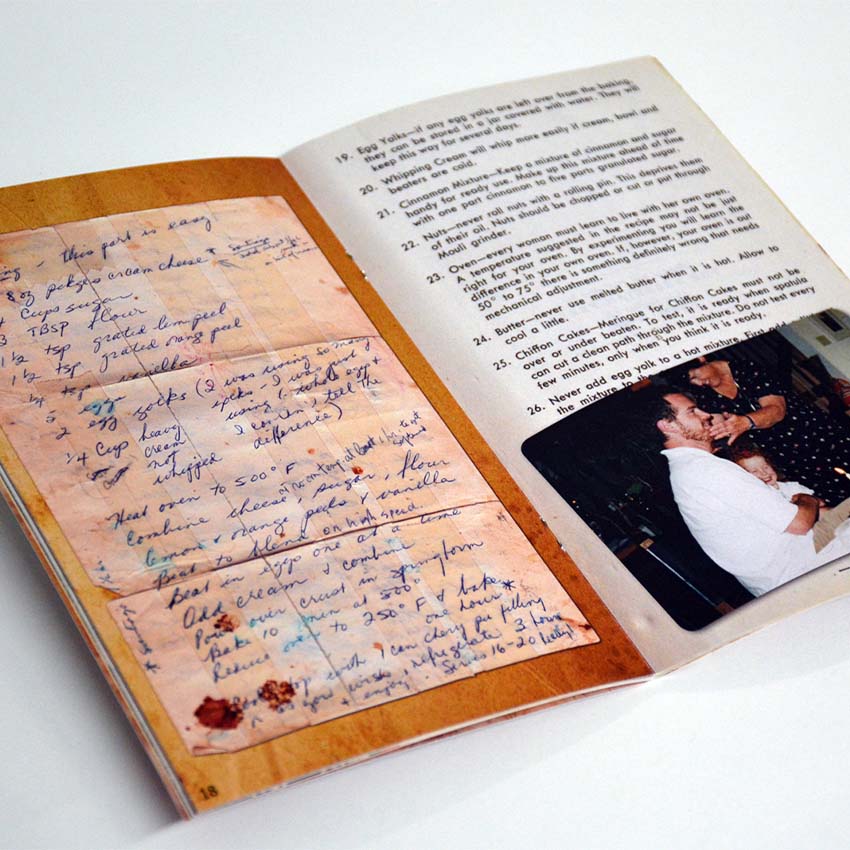 this part is easy
8 oz pckges cream cheese *
cups sugar
3 TBSP flour
1 1/2 tsp grated lemon peel
1 1/2 tsp grated orange peel
1/4 tsp vanilla
5 eggs
2 egg yolks (I was using so many
yolks - I was just
using 1 whole egg +
I can't tell the
difference)
1/4 cup heavy
cream
not
whipped
Heat oven to 500° F
Combine cheese, sugar, flour
lemon + orange peels, vanilla
Beat to blend on high speed
Beat in eggs one at a time
Add cream & combine
Pour over crust in springform
Bake 10 min at 500°
Reduce oven to 250° F & bake *
one hour
top with 1 can cherry pie filling
if you wish, refrigerate 3 hours
+ enjoy! Serves 16-20
18
19. Egg Yolks—if any egg yolks are left over from the baking,
they can be stored in a jar covered with water. They will
keep this way for several days.
20. Whipping Cream will whip more easily if cream, bowl and
beaters are cold.
21. Cinnamon Mixture—Keep a mixture of cinnamon and sugar
handy for ready use. Make up this mixture ahead of time
with one part cinnamon to five parts granulated sugar.
22. Nuts—never roll nuts with a rolling pin. This deprives them
of their oil. Nuts should be chopped or cut or put through
Mouli grinder.
23. Oven—every woman must learn to live with her own oven.
A temperature suggested in the recipe may not be just
right for your oven. By experimenting you will learn the
difference in your own oven. If, however, your oven is out
50° to 75° there is something definitely wrong that needs
mechanical adjustment.
24. Butter—never use melted butter when it is hot. Allow to
cool a little.
25. Chiffon Cakes—Meringue for Chiffon Cakes must not be
over or under beaten. To test, it is ready when spatula
can cut a clean path through the mixture. Do not test every
few minutes, only when you think it is ready.
26. Never add egg yolk to a hot mixture. First add
the mixture to the